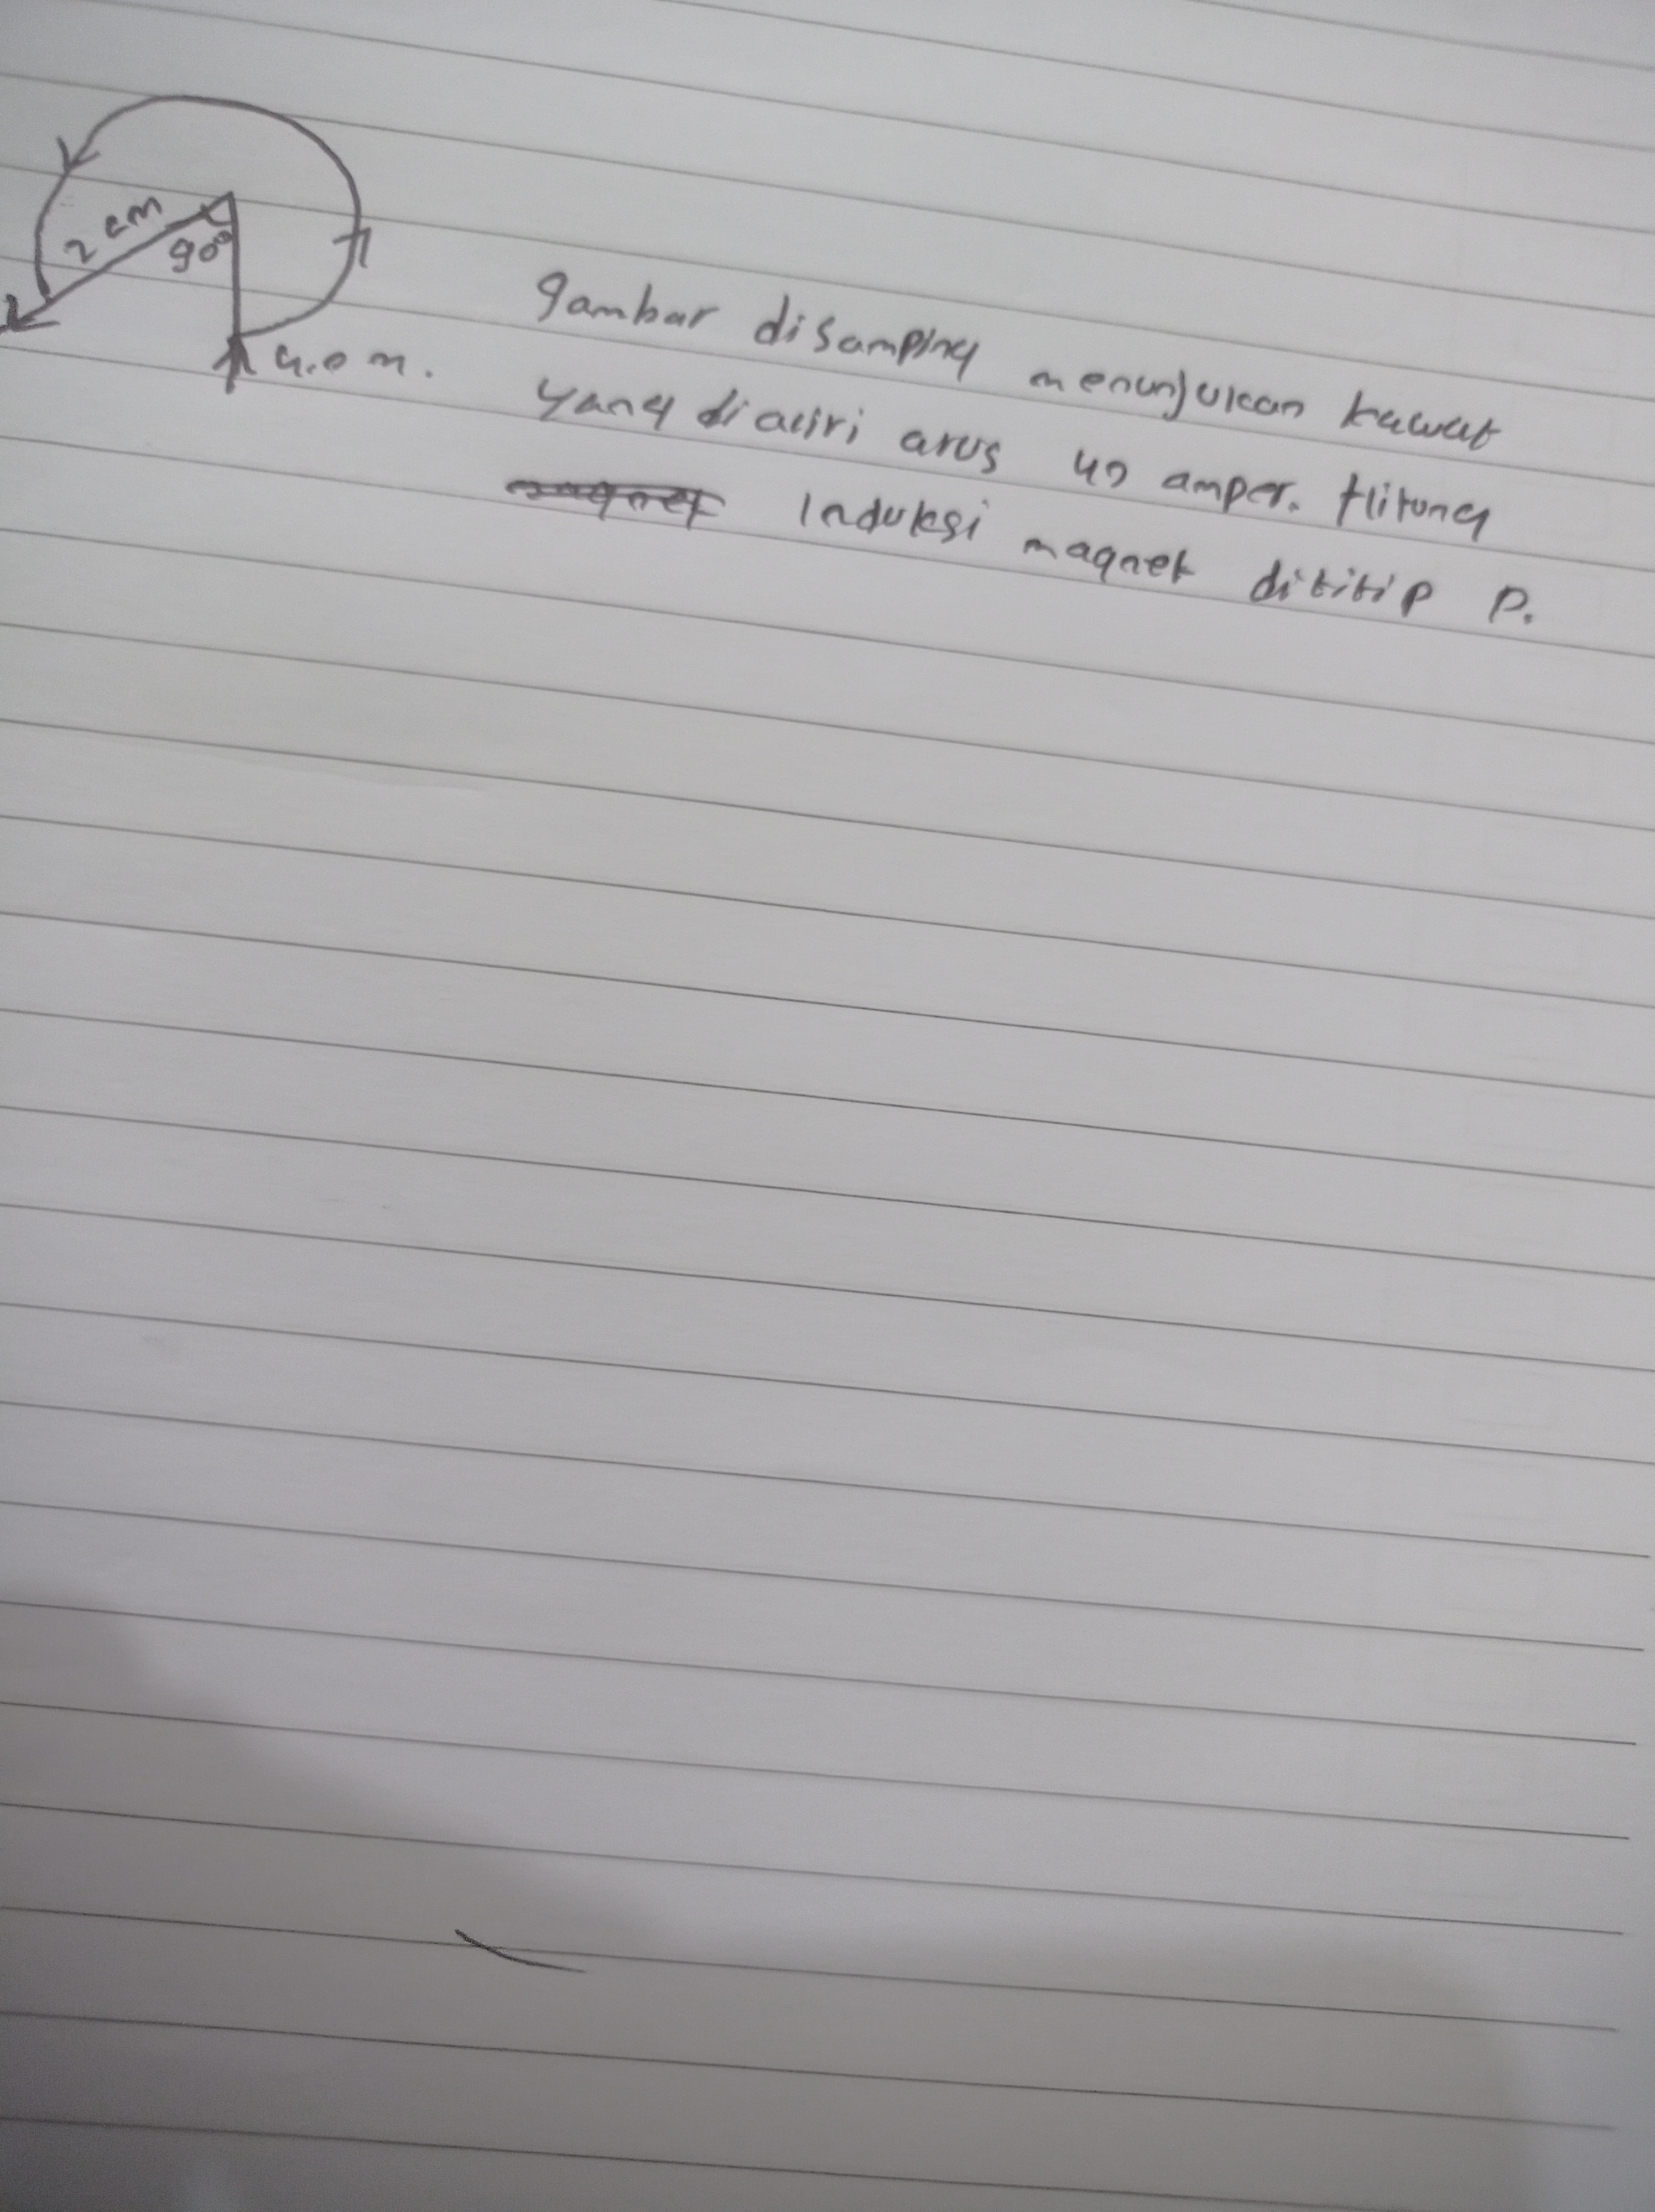 2 cm
90°
gambar disamping menunjukan kawat
yang dialiri arus 40 amper. Hitung
Induksi magnet dititip P.